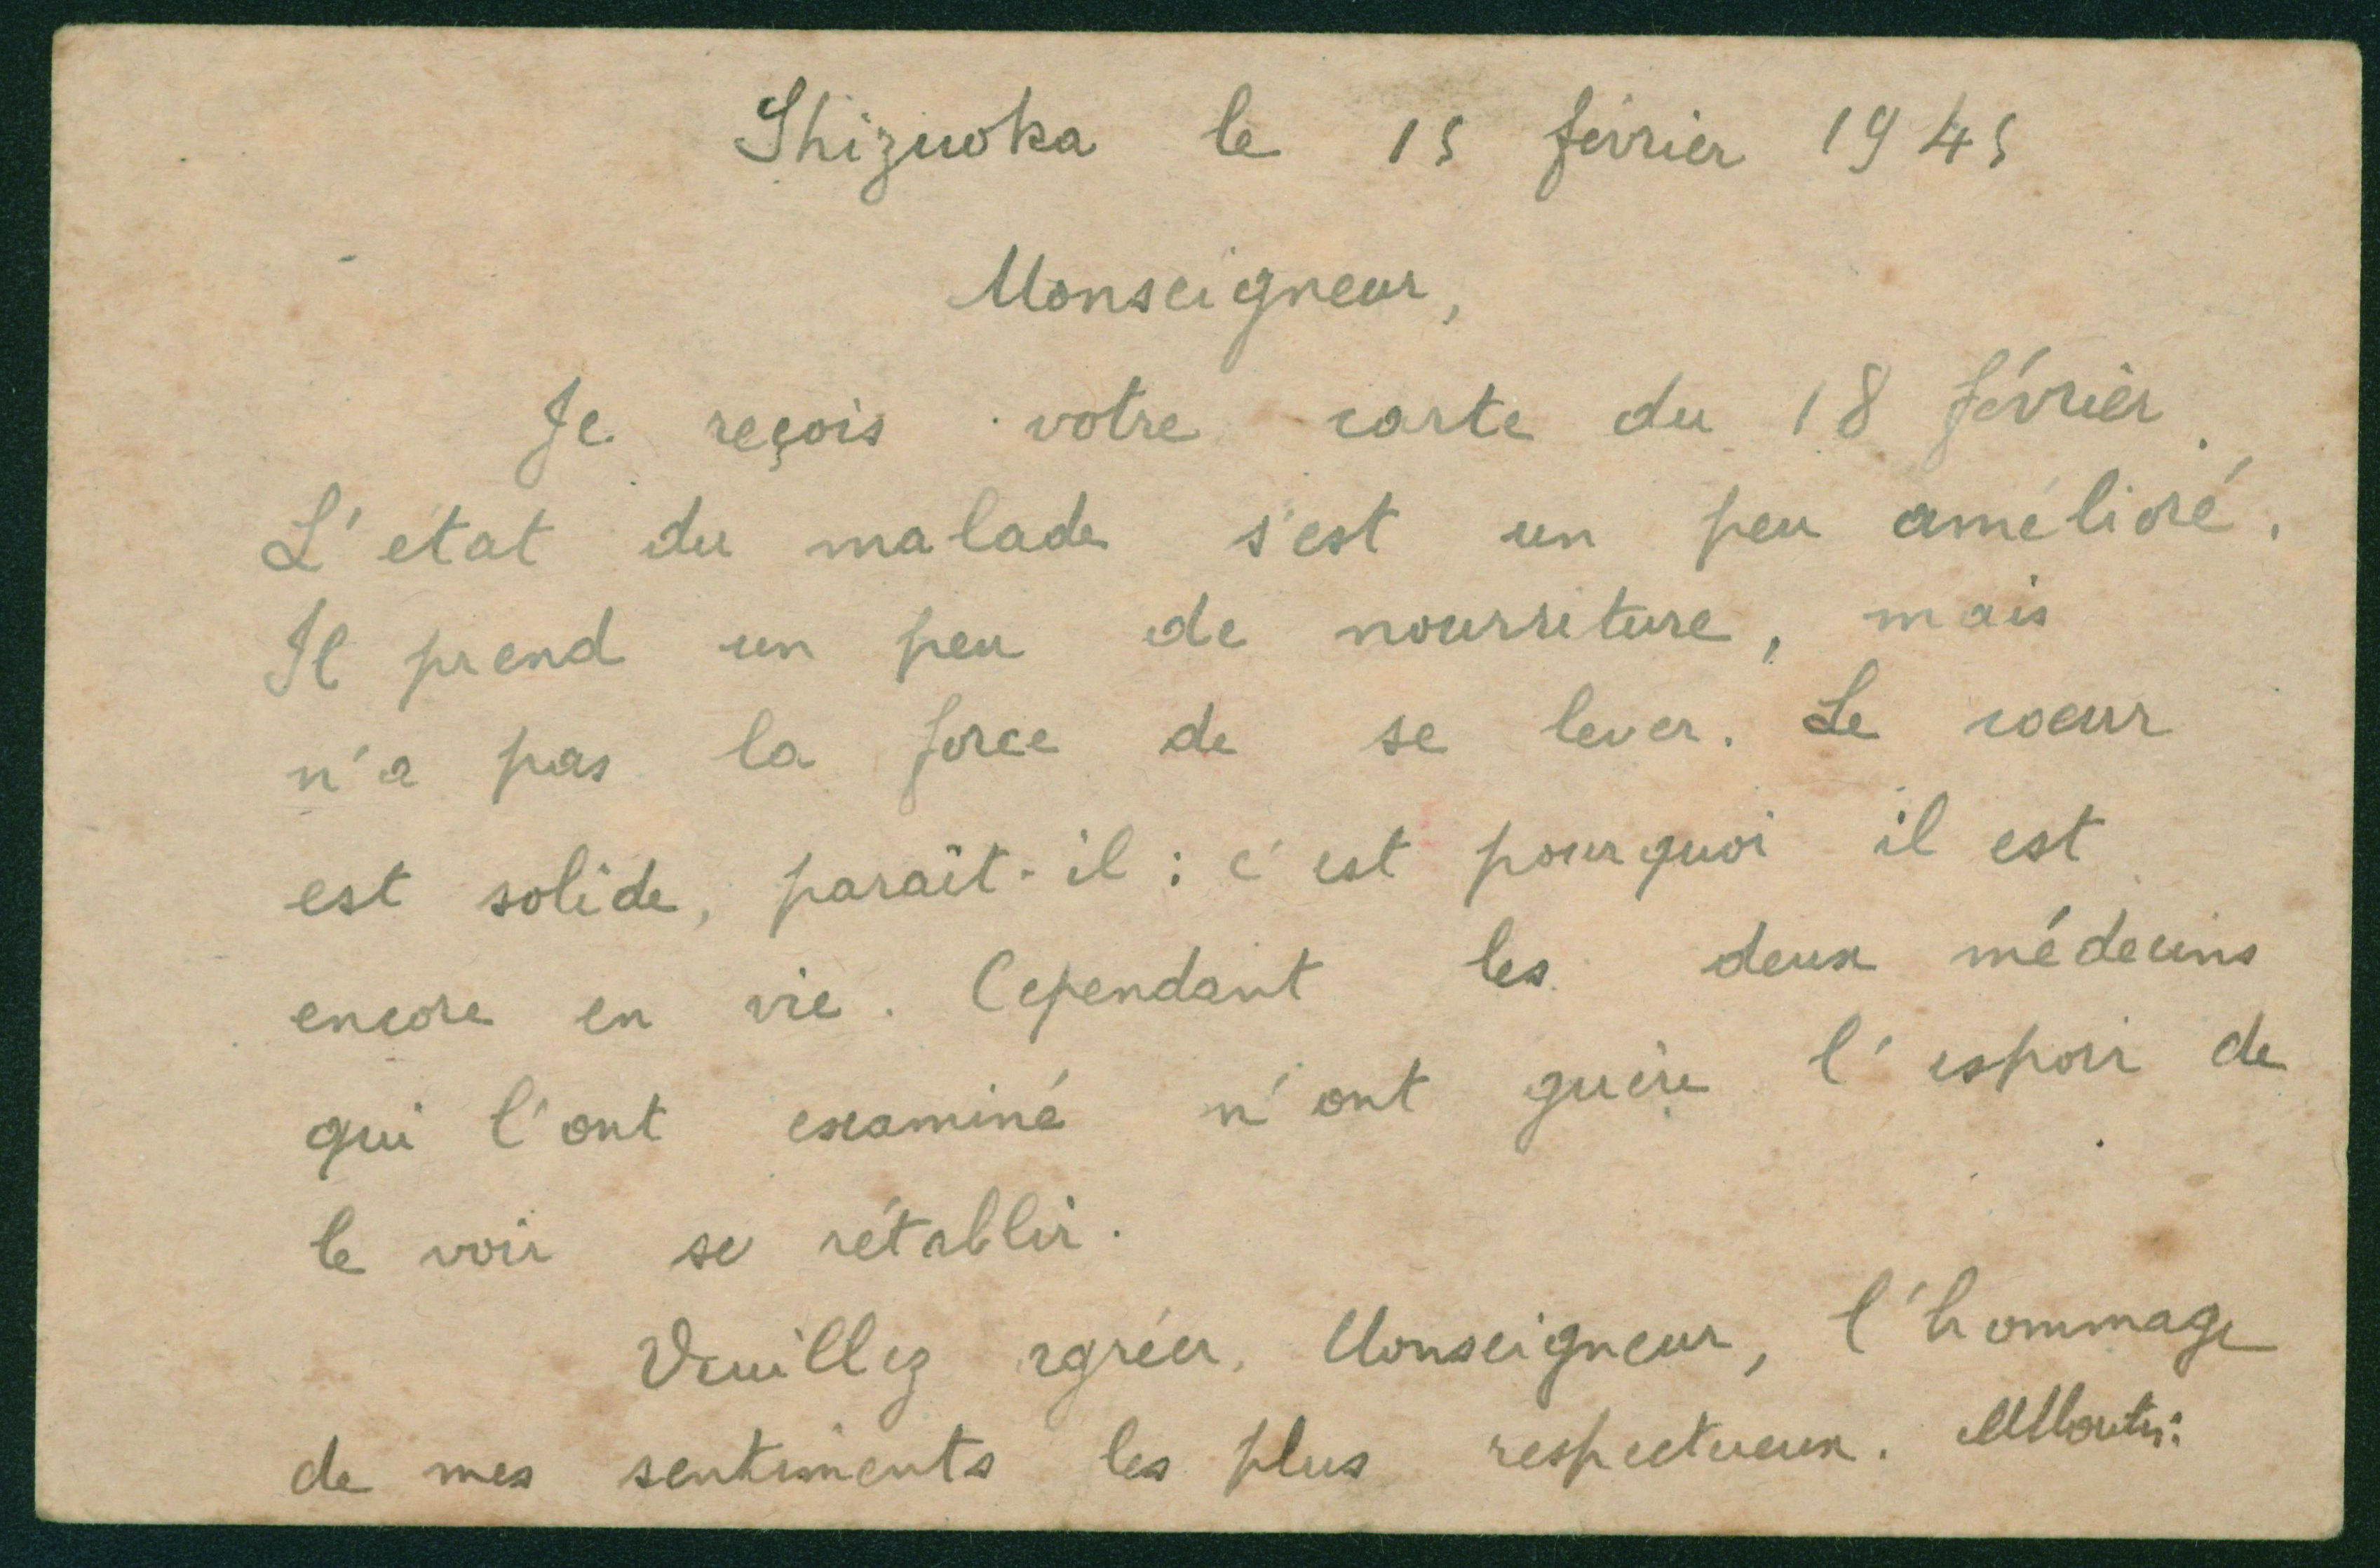 Shizuoka le 15 février 1945
Monseigneur,
Je reçois votre carte du 18 février.
L'état du malade s'est un peu amélioré.
Il prend un peu de nourriture, mais
n'a pas la force de se lever. Le coeur
est solide, paraît-il : c'est pourquoi il est
encore en vie. Cependant les deux médecins
qui l'ont examiné n'ont guère l'espoir de
le voir se rétablir.
Veuillez agréer, Monseigneur, l'hommage
de mes sentiments les plus respectueux.